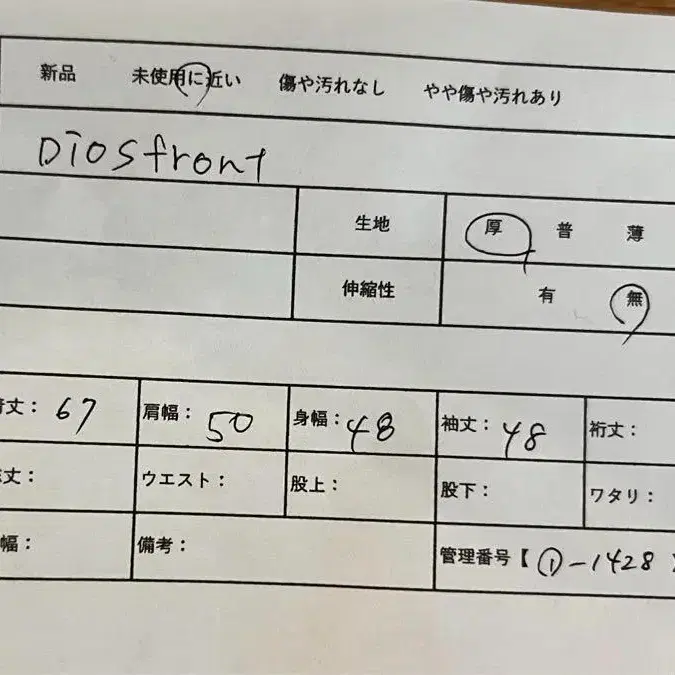 新品 未使用に近い 傷や汚れなし やや傷や汚れあり
Diosfront
生地 厚 普 薄
伸縮性 有 無
丈： 67 肩幅： 50 身幅： 48 袖丈： 48 裄丈：
丈： ウエスト： 股上： 股下： ワタリ：
幅： 備考： 管理番号【 ①-1428